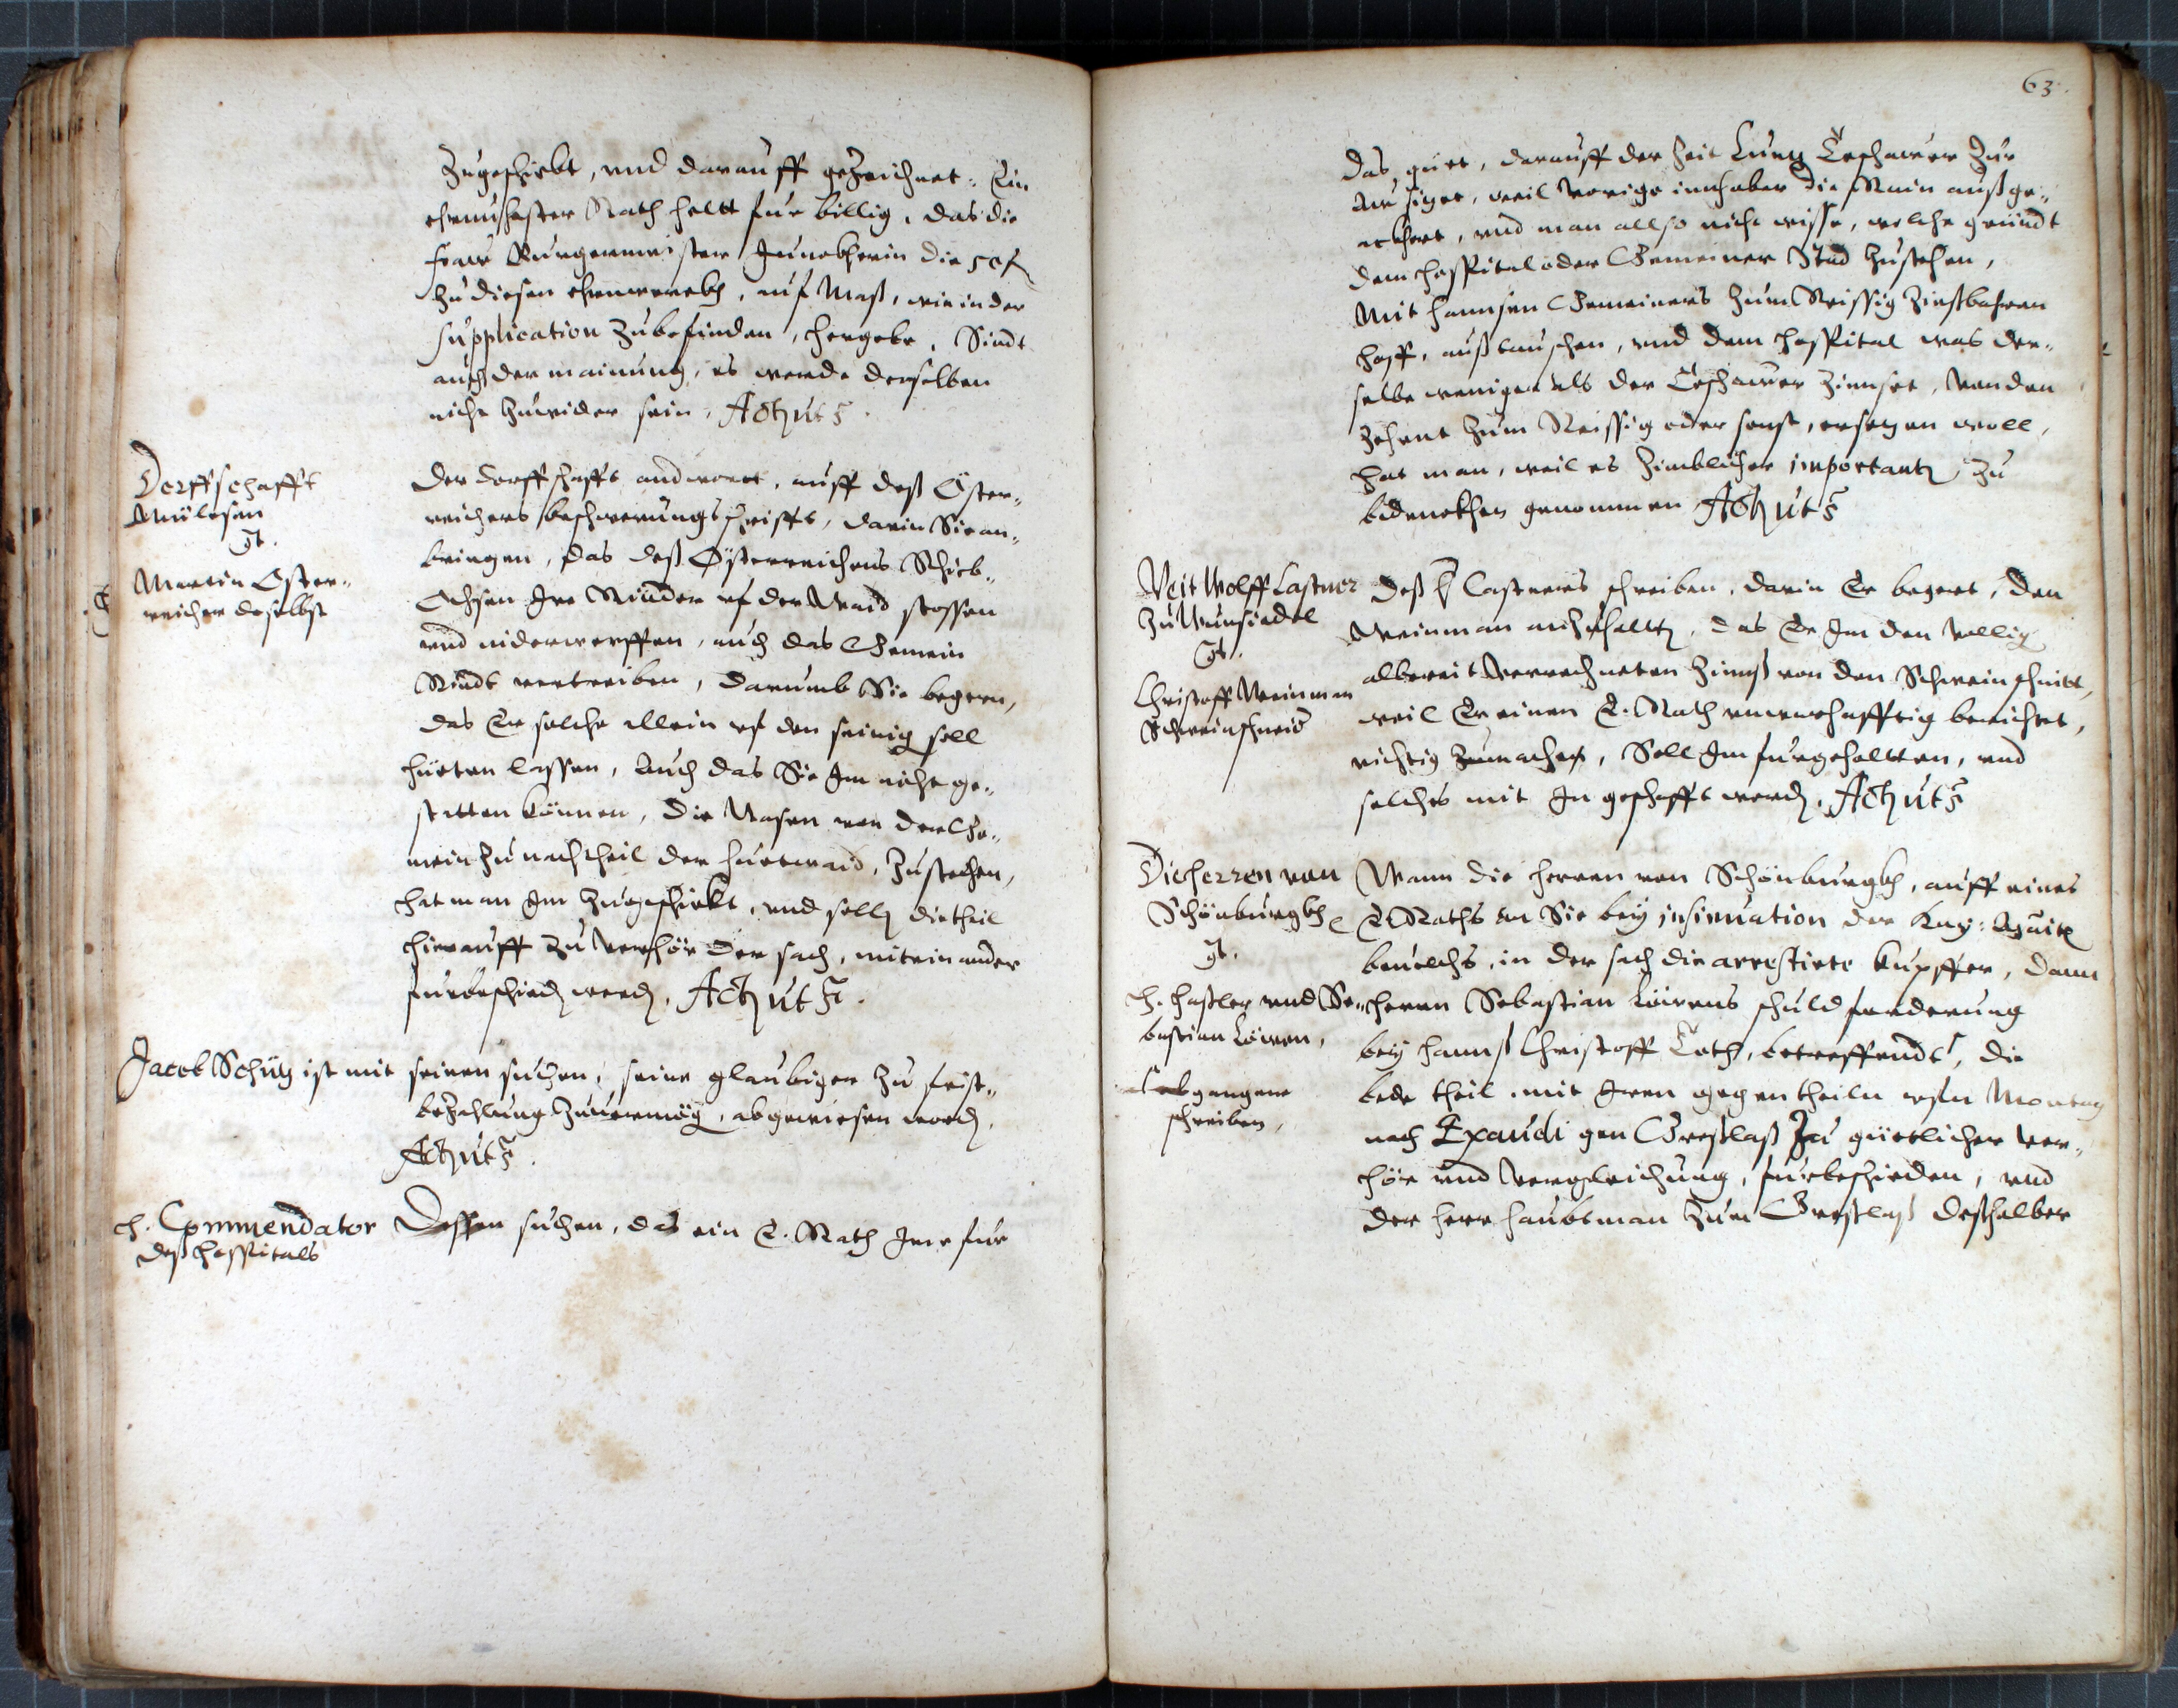 Zugeschickt, vnd darauff gezeichnet: Ein
ehrnuhester Rath helt fur billig, das die
fraw Burgermeister Junckherin die 50 f
zu diesen ehrnwerckh, auf Maß, wie in der
supplication zubefinden, hergebe, Sindt
auch der mainung, es werde derselben
nicht zuwider sein. Act: ut s.
Dorffschafft
Mülesan
ct.
Martin Öster-
reicher daselbst
Der dorffschafft andwort, auff deß Öster-
reichers beschwerungsschrifft, darin Sie an-
bringen, das deß Österreichers Schieb-
Ochsen Ire Rinder vf der Waid stossen
vnd niderwerffen, auch das Gemein
Rindt vertreiben, Darumb Sie begern,
das Er solche allein vf den seinig soll
hüeten lassen, Auch das Sie Im nicht ge-
statten können, die Wasen von der Ge-
mein zu nachtheil der huetwaid, Zustechen,
hat man Im zugeschickt, vnd solln die theil
hierauff zu verhör der sach, miteinander
furbeschieden werden. Act: ut s.
Jacob Schütz ist mit seinen suchen, seine glaubiger zu frist-
bezahlung zuuermög, abgewiesen worden.
Act: ut s.
h. Commendator
deß hospitals
Dessen suchen, das ein E. Rath Ime fur
63.
das guet, darauff der Zeit Lung Teschawer zur
Aw sizet, weil vorige innhaber die Rain außge-
ackhert, vnd man allso nicht wisse, welche gründt
dem hospital oder Gemeiner Stad zustehen,
Mit hannsen Gemeiners zum Reissig zinßbahren
hoff, außtauschen, vnd dem hospital was der-
selbe weniger als der Teschawer zinnset, von den
zehent zum Reissig oder sonst, ersezen woll,
hat man, weil es zimblicher importantz, zu
bedenckhen genommen, Act: ut s.
Veit Wolff Castner
zu Wunsiedel
ct.
Christoff Weinman
Schweinschneid
Deß Castners schreiben, darin Er begert, den
Weinman anzuhalten, das Er Im den völlig
albereit verrechneten zinnß von den Schweinschnitt,
weil Er einen E. Rath vnwarhafftig berichtet,
richtig zumachen, Soll Im furgehaltten, vnd
solches mit In geschafft werden. Act: ut s.
Die herren von
Schönburgkh
ct.
h. Haßler vnd Se-
bastian Löwen,
Abgangene
schreiben,
Wann die herren von Schönburgkh, auff eines
E. Raths an Sie bey insinuation der Kay:
beuelchs, in der sach die arrestirte kupffer, dann
herrn Sebastian Löwens schuldforderung
bey hannß Christoff Loth, betreffendt, die
bede theil mit Iren gegentheiln vfn Montag
nach Exaudi gen Greßlaß Zu güettlicher ver-
hör vnd vergleichung, furbeschieden, vnd
der herr haubtman zum Greßlaß deßhalber